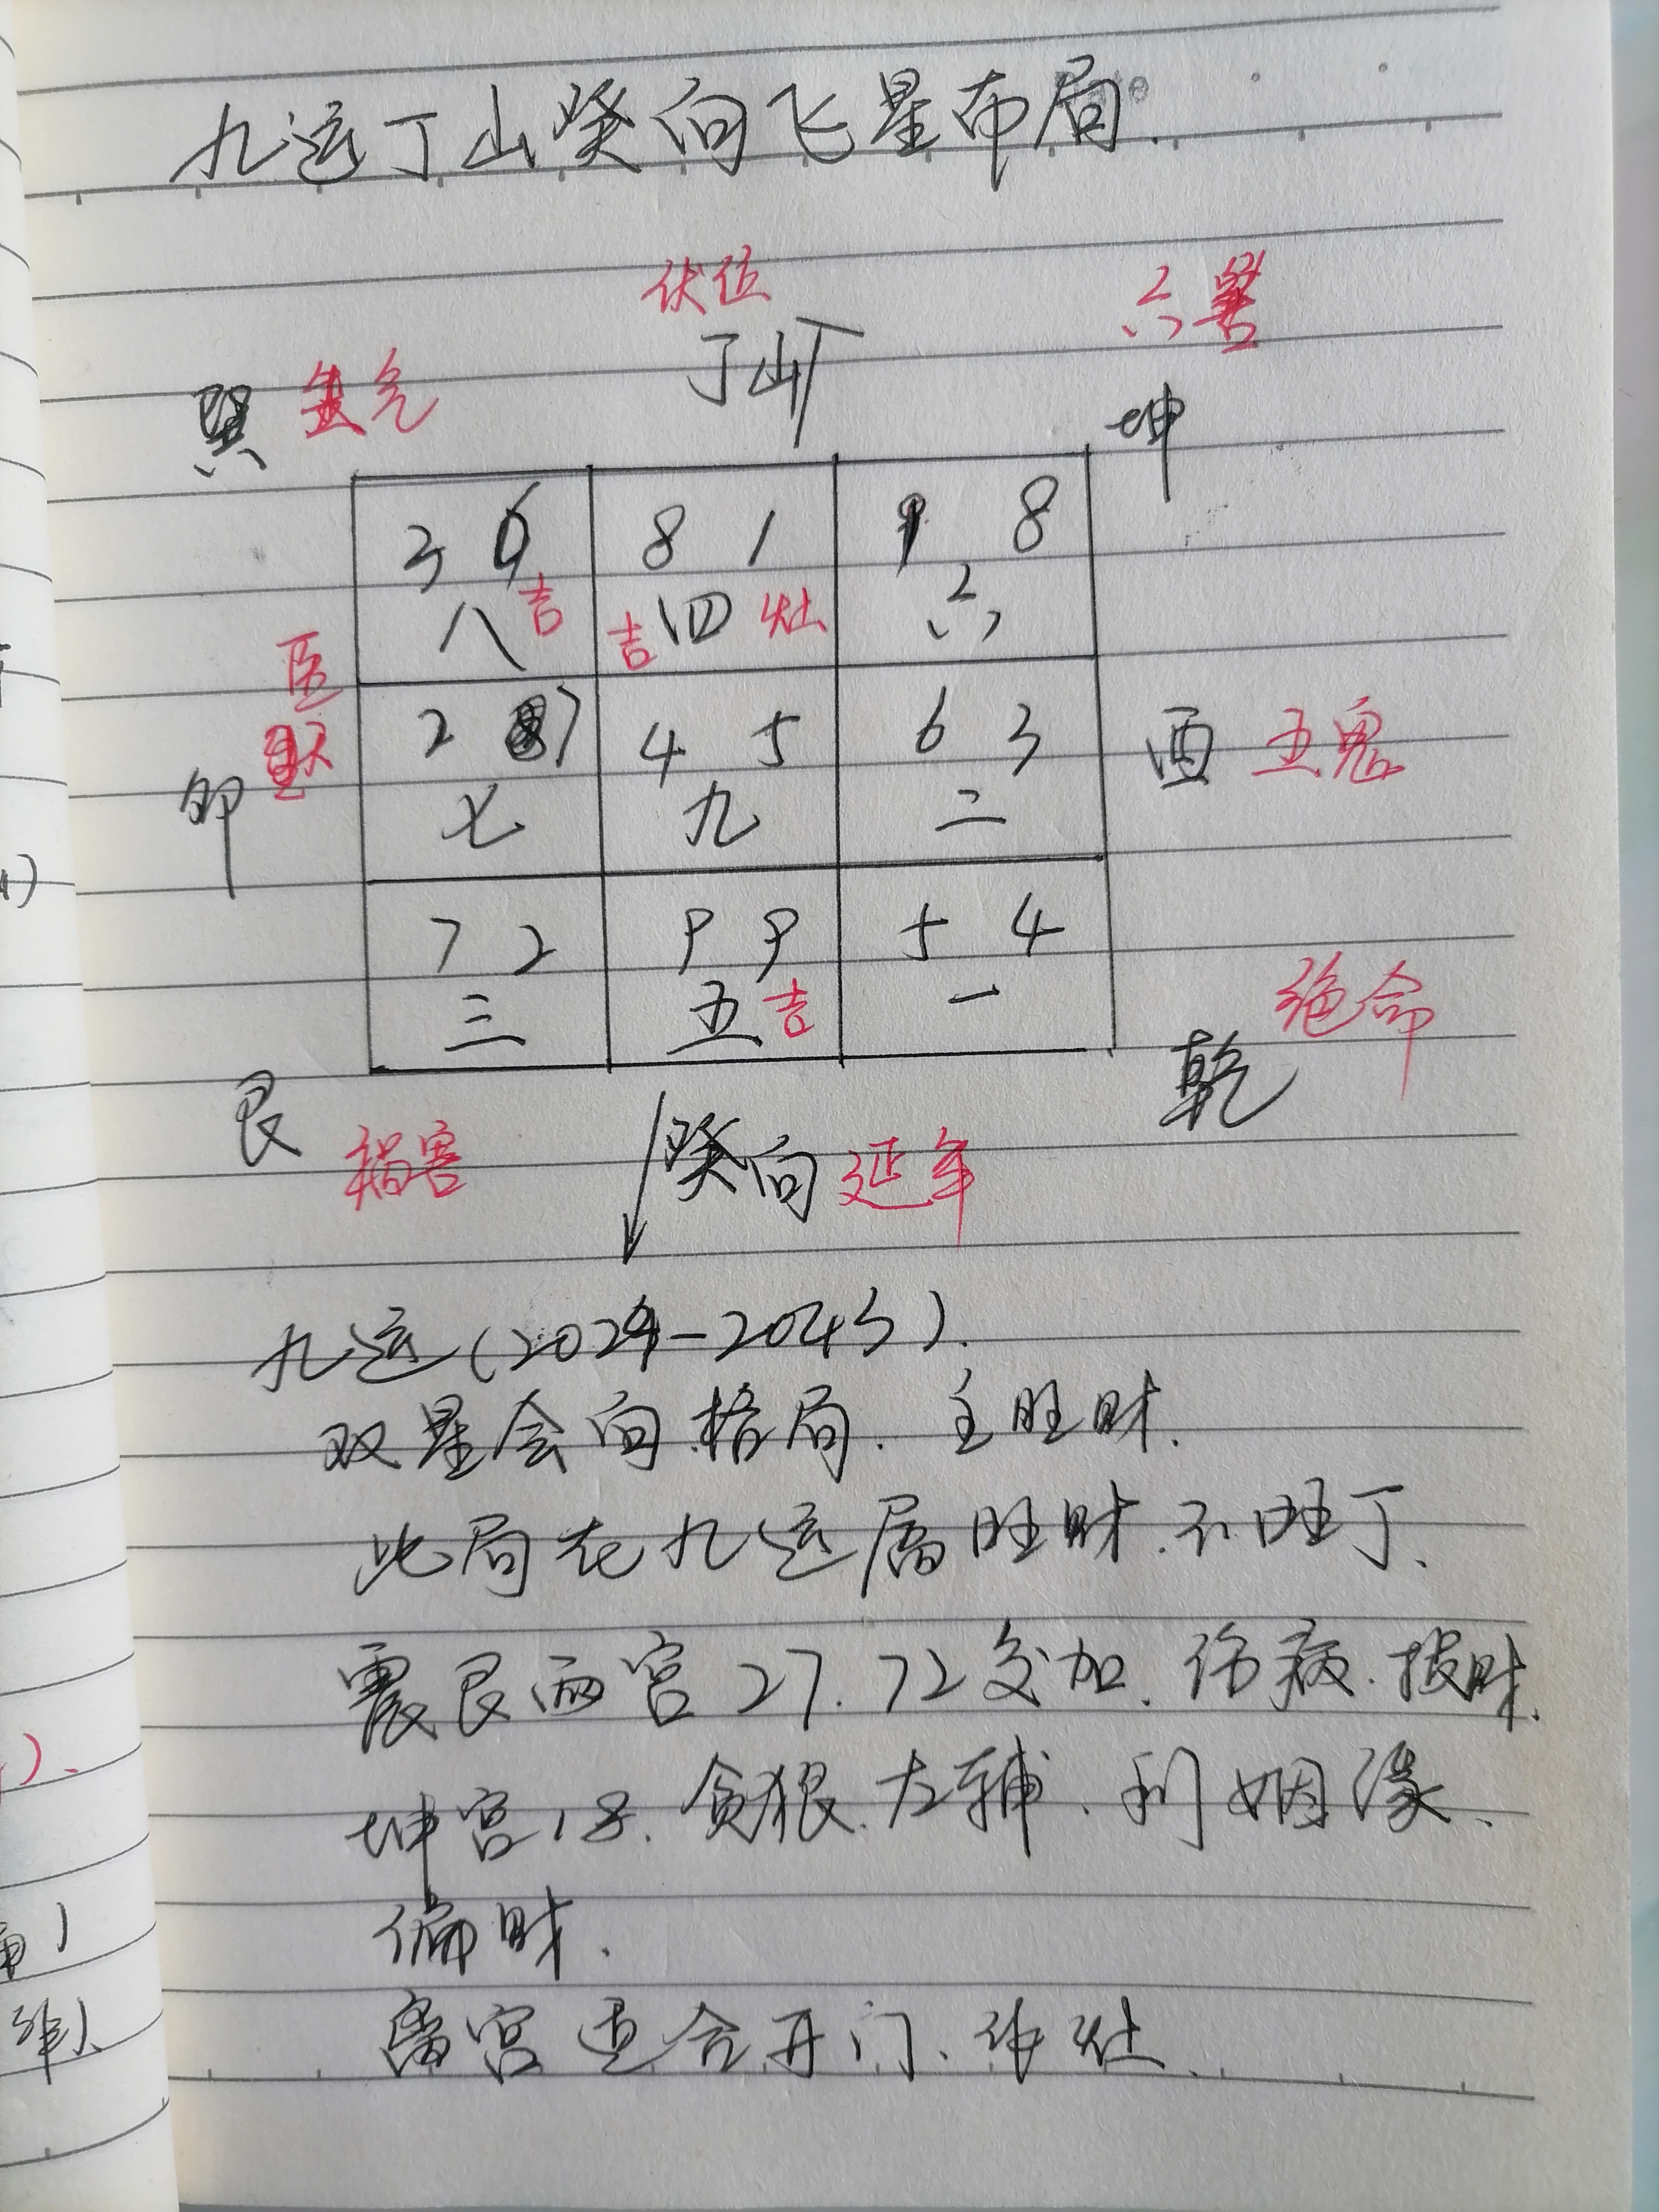 九运丁山癸向飞星布局.
伏位
六害
丁山
巽 生气
坤
3 6 8 1 1 8
八 吉 吉 四 灶 六
医
2 7 4 5 6 3
酉 五鬼
卯
七 九 二
7 2 9 9 5 4
三 五 吉 一
绝命
乾
艮 祸害
癸向 延年
九运(2024-2043).
双星会向格局. 主旺财.
此局在九运属旺财.不旺丁、
震艮两宫27.72交加.伤病.损财.
坤宫18.贪狼.左辅.利姻缘、
偏财.
离宫适合开门、作灶、